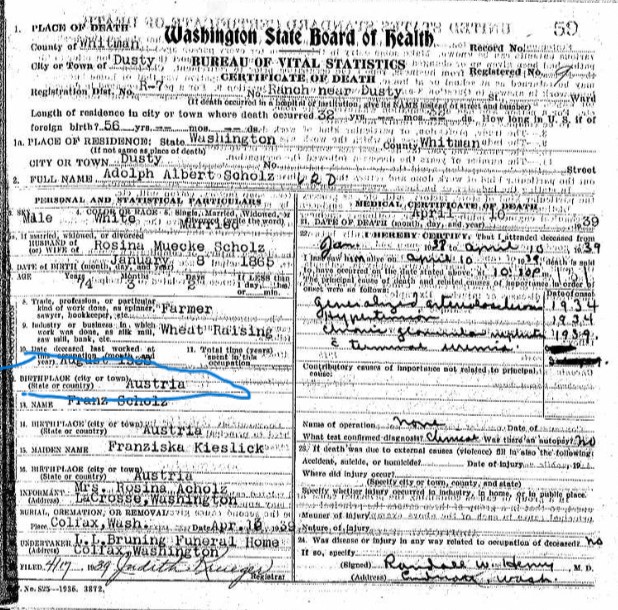 59
1. PLACE OF DEATH
Washington State Board of Health
County of Whitman
Record No.
City or Town of Dusty
BUREAU OF VITAL STATISTICS
Registered No. 7
CERTIFICATE OF DEATH
Registration Dist. No. R-7 No. Ranch near Dusty St. Ward
(If death occurred in a hospital or institution, give its NAME instead of street and number)
Length of residence in city or town where death occurred 32 yrs. mos. ds. How long in U. S. if of
foreign birth? 56 yrs. mos. ds.
1a. PLACE OF RESIDENCE: State Washington County Whitman
(If not same as place of death)
CITY OR TOWN Dusty Street
2. FULL NAME Adolph Albert Scholz
PERSONAL AND STATISTICAL PARTICULARS
3. SEX 4. COLOR OR RACE 5. Single, Married, Widowed, or
Male White Married
If married, widowed, or divorced
HUSBAND of
(or) WIFE of Rosina Muecke Scholz
DATE OF BIRTH (month, day, and year) January 8 1865
AGE 74 3 2 If LESS than
1 day, hrs.
or min.
8. Trade, profession, or particular
kind of work done, as spinner, Farmer
sawyer, bookkeeper, etc.
9. Industry or business in which
work was done, as silk mill, Wheat Raising
saw mill, bank, etc.
10. Date deceased last worked at
this occupation (month and
year) August
11. Total time (years)
spent in this
occupation
BIRTHPLACE (city or town)
(State or country) Austria
13. NAME Franz Scholz
14. BIRTHPLACE (city or town)
(State or country) Austria
15. MAIDEN NAME Franziska Kieslick
16. BIRTHPLACE (city or town)
(State or country) Austria
INFORMANT Mrs. Rosina Acholz
(Address) LaCrosse, Washington
BURIAL, CREMATION, OR REMOVAL
Place Colfax, Wash. Date Apr. 13 39
UNDERTAKER L.L. Bruning Funeral Home
(Address) Colfax, Washington
FILED 4/17 1939 Judith Krueger
Registrar
P. No. 825—1936. 3872.
MEDICAL CERTIFICATE OF DEATH
21. DATE OF DEATH (month, day, and year) April 10 39
22. I HEREBY CERTIFY, That I attended deceased from
Jan. 1938 to April 10 1939
I last saw him alive on April 10 1939 death is said
to have occurred on the date stated above, at 10:10P.
The principal cause of death and related causes of importance in order
Date of
generalized arteriosclerosis 1934
Hypertension 1934
chronic glomerular nephritis 1939
c terminal uremia
Contributory causes of importance not related to principal
cause:
Name of operation none Date of
What test confirmed diagnosis? Clinical Was there an autopsy? no
23. If death was due to external causes (violence) fill in also the following:
Accident, suicide, or homicide? Date of injury 19
Where did injury occur?
(Specify city or town, county, and state)
Specify whether injury occurred in industry, in home, or in public place.
Manner of injury
Nature of injury
24. Was disease or injury in any way related to occupation of deceased? no
If so, specify
(Signed) Randall W. Henry M. D.
(Address) Endicott, Wash.